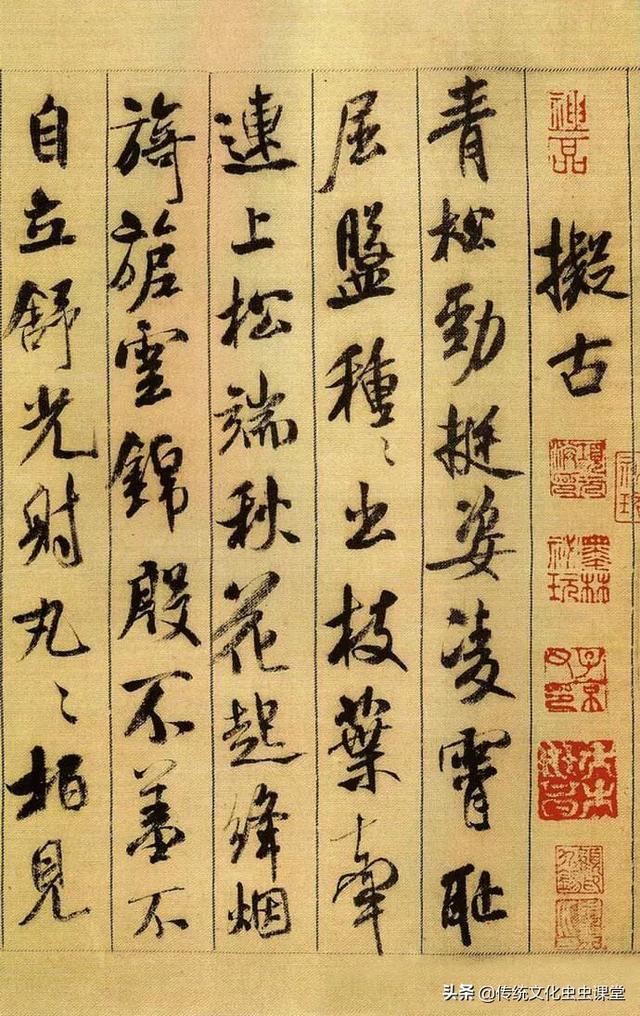 神品
擬古
墨林祕玩
青松勁挺姿凌霄恥
屈盤種〻出枝葉牽
連上松端秋花起絳烟
旖旎雲錦殷不羞不
自立舒光射丸〻柏見
头条 @传统文化虫虫课堂